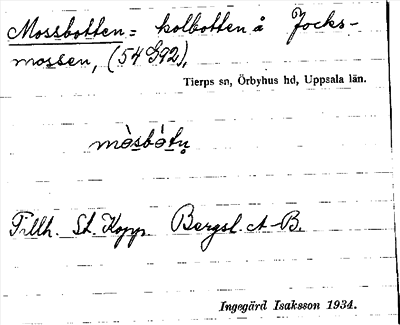 Mossbotten = kolbotten å Jocks-
mossen, (54 G92).
Tierps sn, Örbyhus hd, Uppsala län.
mòsbótn̥
Tillh. St. Kopp. Bergsl. A-B.
Ingegärd Isaksson 1934.